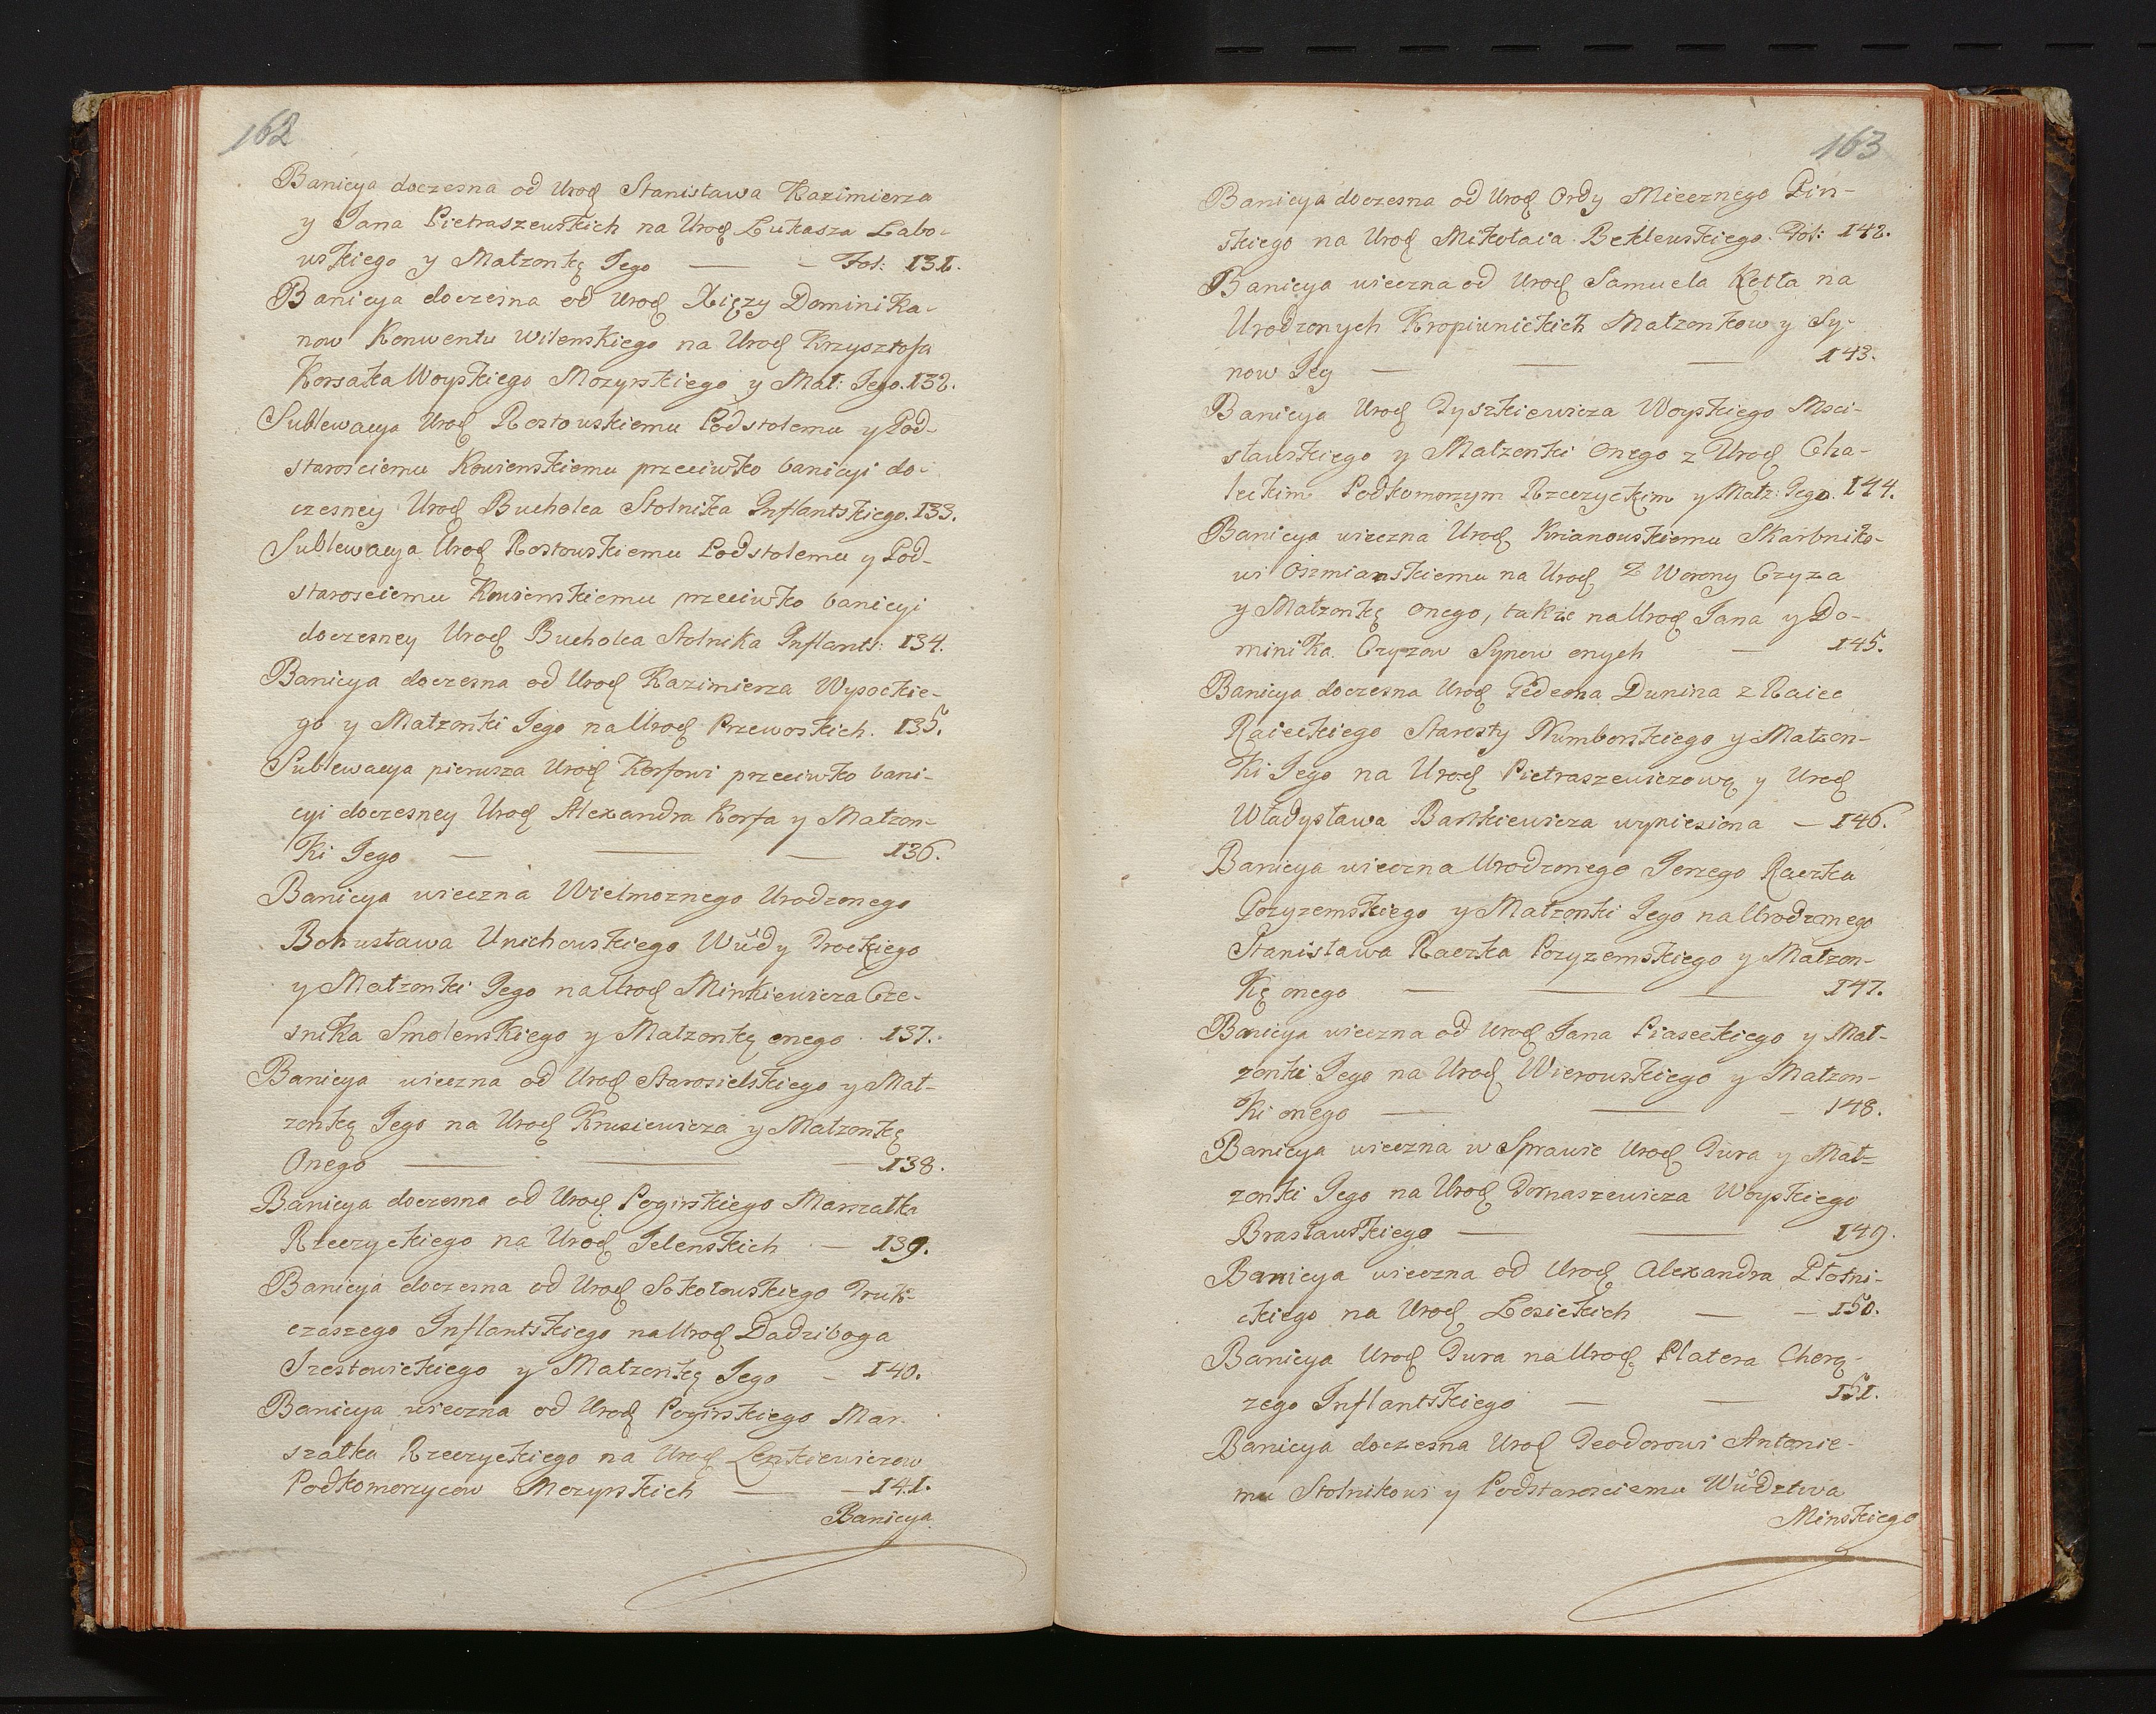 162
Banicya doczesna od Urod Stanisława Kazimierza
y Jana Pietraszewskich na Urod Łukasza Łabo-
wskiego y Małżonkę Jego — - Fol: 131.
Banicya doczesna od Urod Xięży Dominika-
now Konwentu Wilenskiego na Urod Krzysztofa
Korsaka Woyskiego Mozyrskiego y Mał: Jego. 132.
Sublewacya Urod Rostowskiemu Podstolemu y Pod-
starosciemu Kowienskiemu przeciwko banicyi do-
czesney Urod Bucholca Stolnika Inflantskiego. 133.
Sublewacya Urod Rostowskiemu Podstolemu y Pod-
starosciemu Kowienskiemu przeciwko banicyi
doczesney Urod Bucholca Stolnika Inflants: 134.
Banicya doczesna od Urod Kazimierza Wysockie-
go y Małzonki Jego na Urod Przewoskich. 135.
Sublewacya pierwsza Urod Korfowi przeciwko bani-
cyi doczesney Urod Alexandra Korfa y Małzon-
ki Jego — — — 136.
Banicya wieczna Wielmoznego Urodzonego
Bohusława Unichowskiego Wudy Trockiego
y Małzonki Jego na Urod Minkiewicza Cze-
snika Smolenskiego y Małzonkę onego. 137.
Banicya wieczna od Urod Starosielskiego y Mał-
zonkę Jego na Urod Krusiewicza y Małzonkę
Onego — — — 138.
Banicya doczesna od Urod Pogirskiego Marszałka
Rzeczyckiego na Urod Jelenskich — 139.
Banicya doczesna od Urod Sokołowskiego Truk-
czaszego Inflantskiego na Urod Dadziboga
Szestowickiego y Małzonkę Jego - 140.
Banicya wieczna od Urod Pogirskiego Mar-
szałka Rzeczyckiego na Urod Lenkiewiczow
Podkomorzycow Mozyrskich — - 141.
Banicya
163
Banicya doczesna od Urod Ordy Miecznego Pin-
skiego na Urod Mikołaia Beklewskiego. Fol: 142.
Banicya wieczna od Urod Samuela Kętła na
Urodzonych Kropiwnickich Małzonkow y Sy-
now Jey — — — 143.
Banicya Urod Tyszkiewicza Woyskiego Msci-
sławskiego y Małzonki Onego z Urod Cha-
leckim Podkomorzym Rzeczyckim y Małz: Jego. 144.
Banicya wieczna Urod Krianowskiemu Skarbniko-
wi Oszmianskiemu na Urod Z Worony Czyza
y Małzonkę onego, takze na Urod Jana y Do-
minika Czyzow Synow onych — 145.
Banicya doczesna Urod Gedeona Dunina z Raiec
Raieckiego Starosty Numborskiego y Małzon-
ki Jego na Urod Pietraszewiczową y Urod
Władysława Bankiewicza wyniesiona — 146.
Banicya wieczna Urodzonego Jerzego Raczka
Pozyzemskiego y Małzonki Jego na Urodzonego
Stanisława Raczka Pozyzemskiego y Małzon-
kę onego — — — 147.
Banicya wieczna od Urod Jana Piaseckiego y Mał-
zonki Jego na Urod Wierowskiego y Małzon-
ki onego — — - 148.
Banicya wieczna w Sprawie Urod Tura y Mał-
zonki Jego na Urod Tomaszewicza Woyskiego
Brasławskiego — — 149.
Banicya wieczna od Urod Alexandra Płotni-
ckiego na Urod Łosickich — - 150.
Banicya Urod Tura na Urod Platera Chorą-
zego Inflantskiego — — 151.
Banicya doczesna Urod Teodorowi Antonie-
mu Stolnikowi y Podstarosciemu Wudztwa
Minskiego